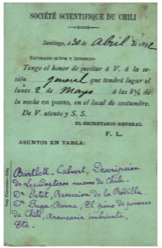 SOCIÉTÉ SCIENTIFIQUE DU CHILI
Santiago, 30 de Abril de 1892
ESTIMADO SEÑOR I CONSOCIO:
Tengo el honor de invitar á V. á la se-
sión general que tendrá lugar el
lunes 2 de Mayo á las 8½ de
la noche en punto, en el local de costumbre.
De V. atento y S. S.
EL SECRETARIO GENERAL
F. L.
ASUNTOS EN TABLA:
Bartlett-Calvert, Descripcion
de lepidópteros nuevos de Chile.
Dr Petit, de la Rodilla
Dr Puga Borne, El pino de piñones
de Chile, Araucaria imbricata,
Etc.